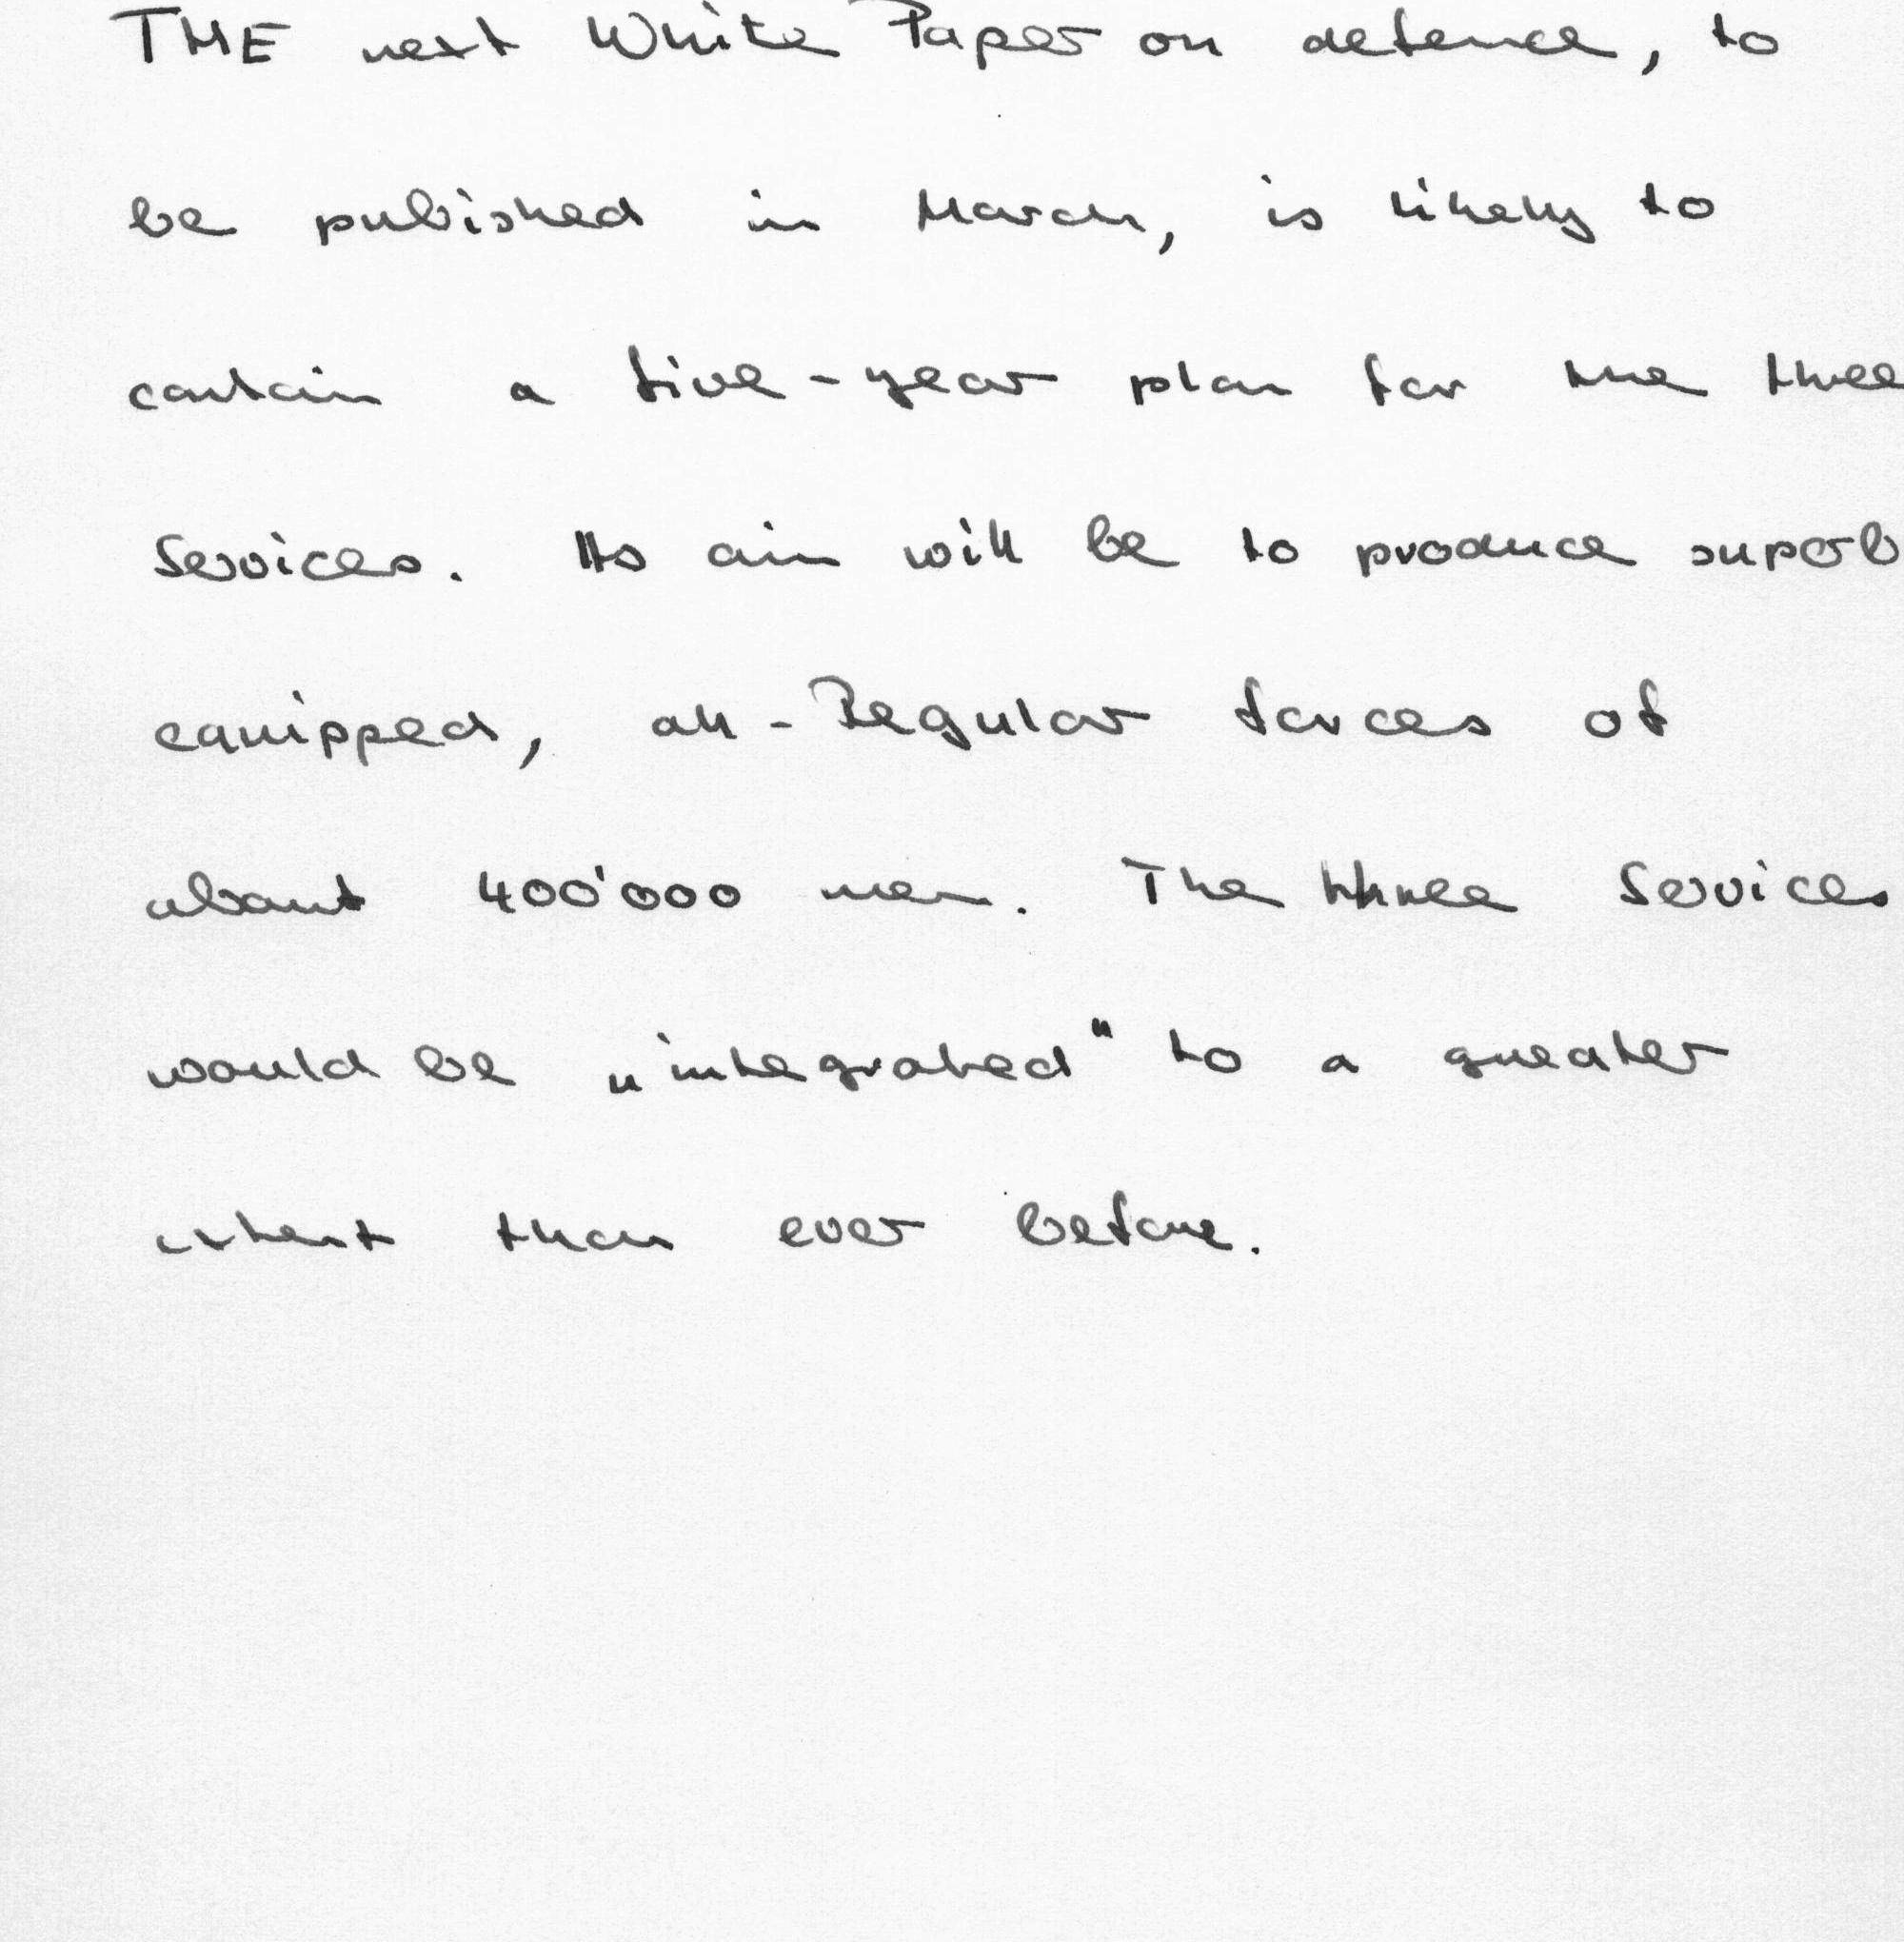 THE next White Paper on defence, to
be pubished in March, is likely to
contain a five-year plan for the three
Services. Its aim will be to produce superb
equipped, all-Regular forces of
about 400'000 men. The three Services
would be „integrated" to a greater
extent than ever before.